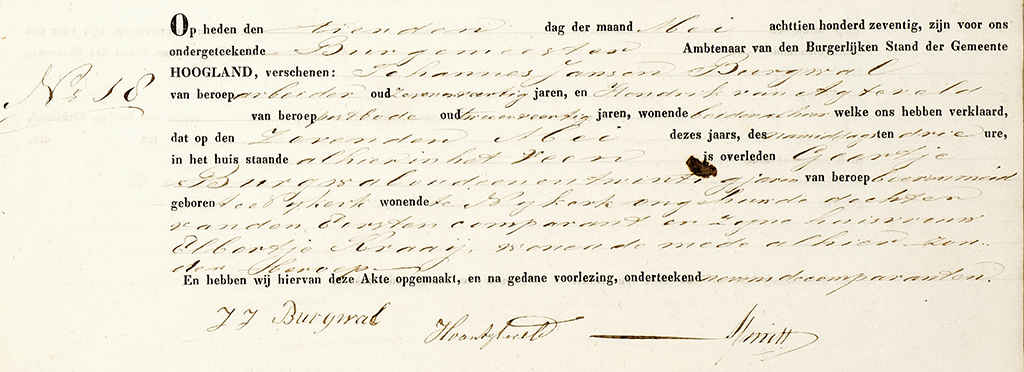 Op heden den tienden dag der maand Mei achttien honderd zeventig, zijn voor ons
ondergeteekende Burgemeester Ambtenaar van den Burgerlijken Stand der Gemeente
No. 18 HOOGLAND, verschenen: Johannes Jansen Burgwal
van beroep arbeider oud zevenenveertig jaren, en Hendrik van Agteveld
van beroep veldbode oud tweeenveertig jaren, wonende beiden alhier welke ons hebben verklaard,
dat op den Zevenden Mei dezes jaars, des namiddags ten drie ure,
in het huis staande alhier in het veen is overleden Geertje
Burgwal oud eenentwintig jaren van beroep boerenmeid
geboren te Nijkerk wonende te Nijkerk ongehuwde dochter
van den Eersten comparant en zijne huisvrouw
Elbertje Kraaij, wonende mede alhier zon-
der beroep
En hebben wij hiervan deze Akte opgemaakt, en na gedane voorlezing, onderteekend nevens de comparanten.
J J Burgwal HvanAgteveld